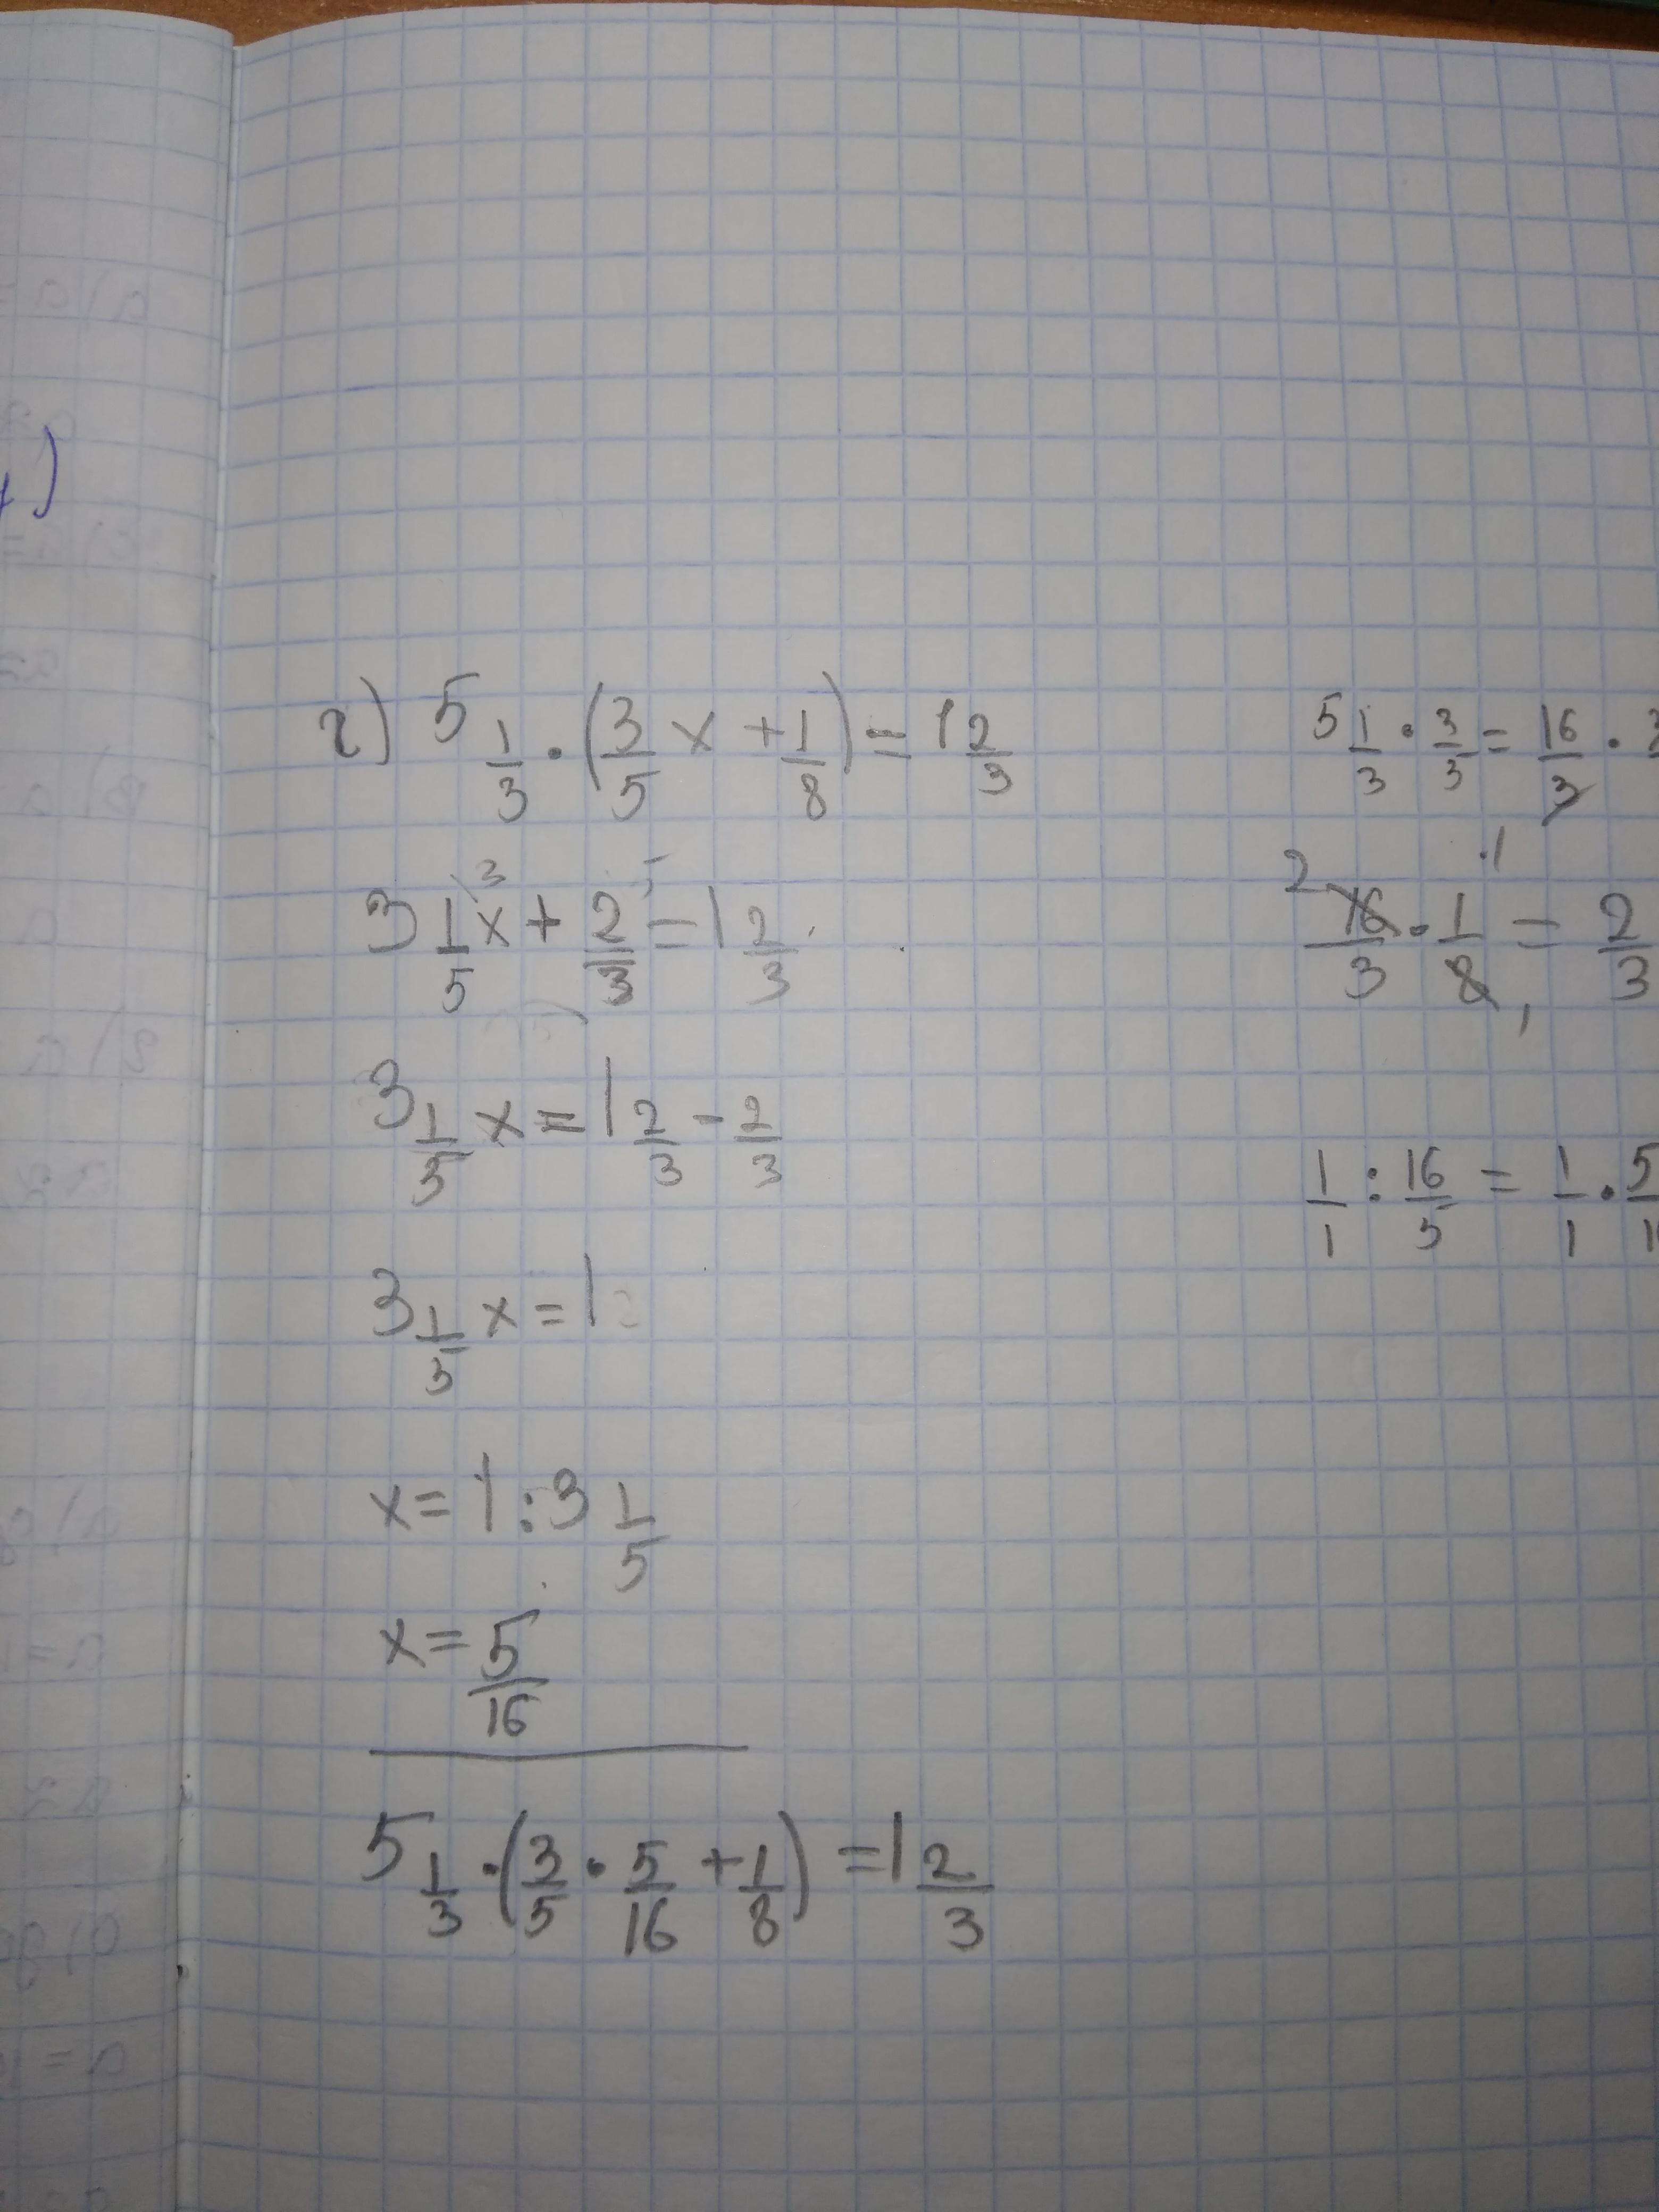 г) 5 1/3 · (3/5 x + 1/8) = 1 2/3
3 1/5 x + 2/3 = 1 2/3
3 1/5 x = 1 2/3 - 2/3
3 1/5 x = 1
x = 1 : 3 1/5
x = 5/16
5 1/3 · (3/5 · 5/16 + 1/8) = 1 2/3
5 1/3 · 3/3 = 16/3 ·
16/3 · 1/8 = 2/3
1/1 : 16/5 = 1/1 ·